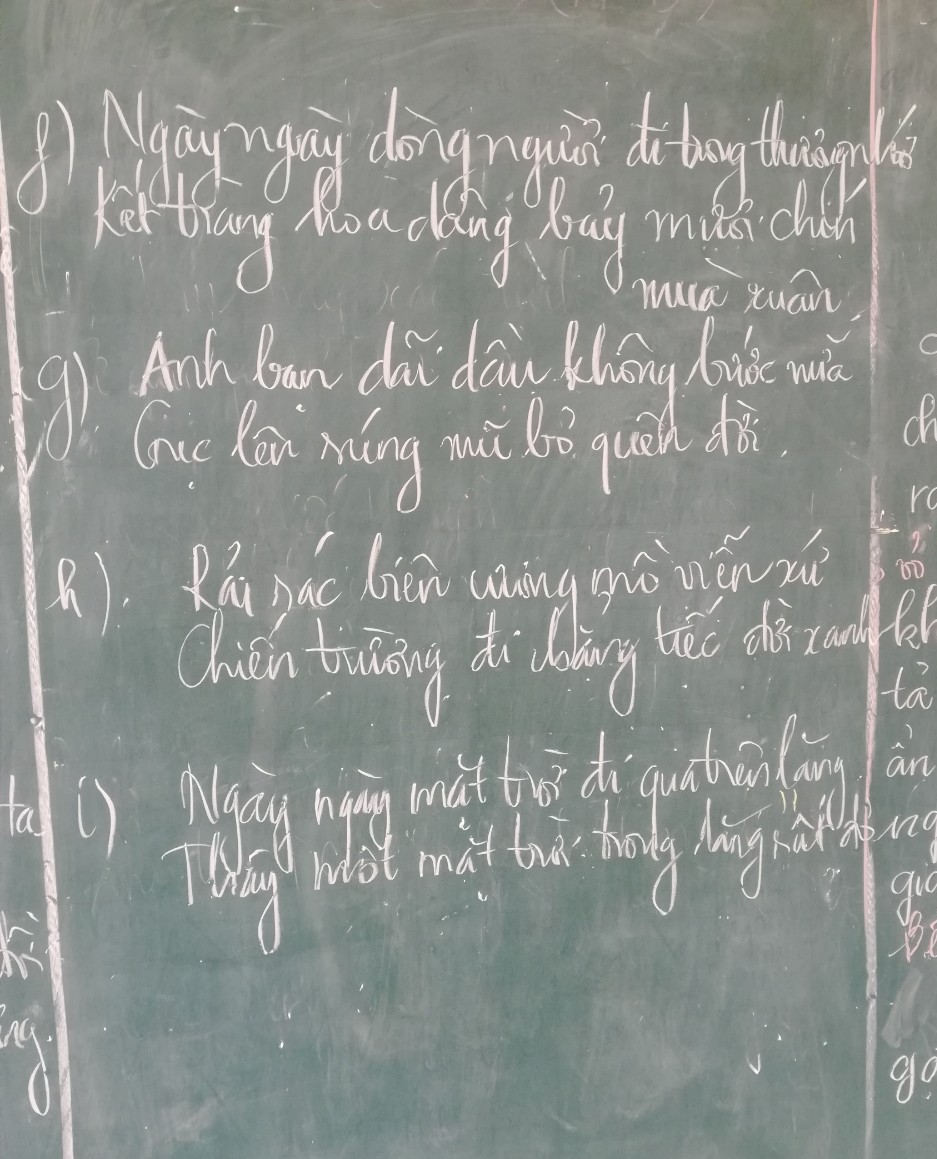 f) Ngày ngày dòng người đi trong thương nhớ
Kết tràng hoa dâng bảy mươi chín
mùa xuân
g) Anh bạn dãi dầu không bước nữa
Gục lên súng mũ bỏ quên đời.
h). Rải rác biên cương mồ viễn xứ
Chiến trường đi chẳng tiếc đời xanh
i) Ngày ngày mặt trời đi qua trên lăng
Thấy một mặt trời trong lăng rất đỏ
ta
ch
tả